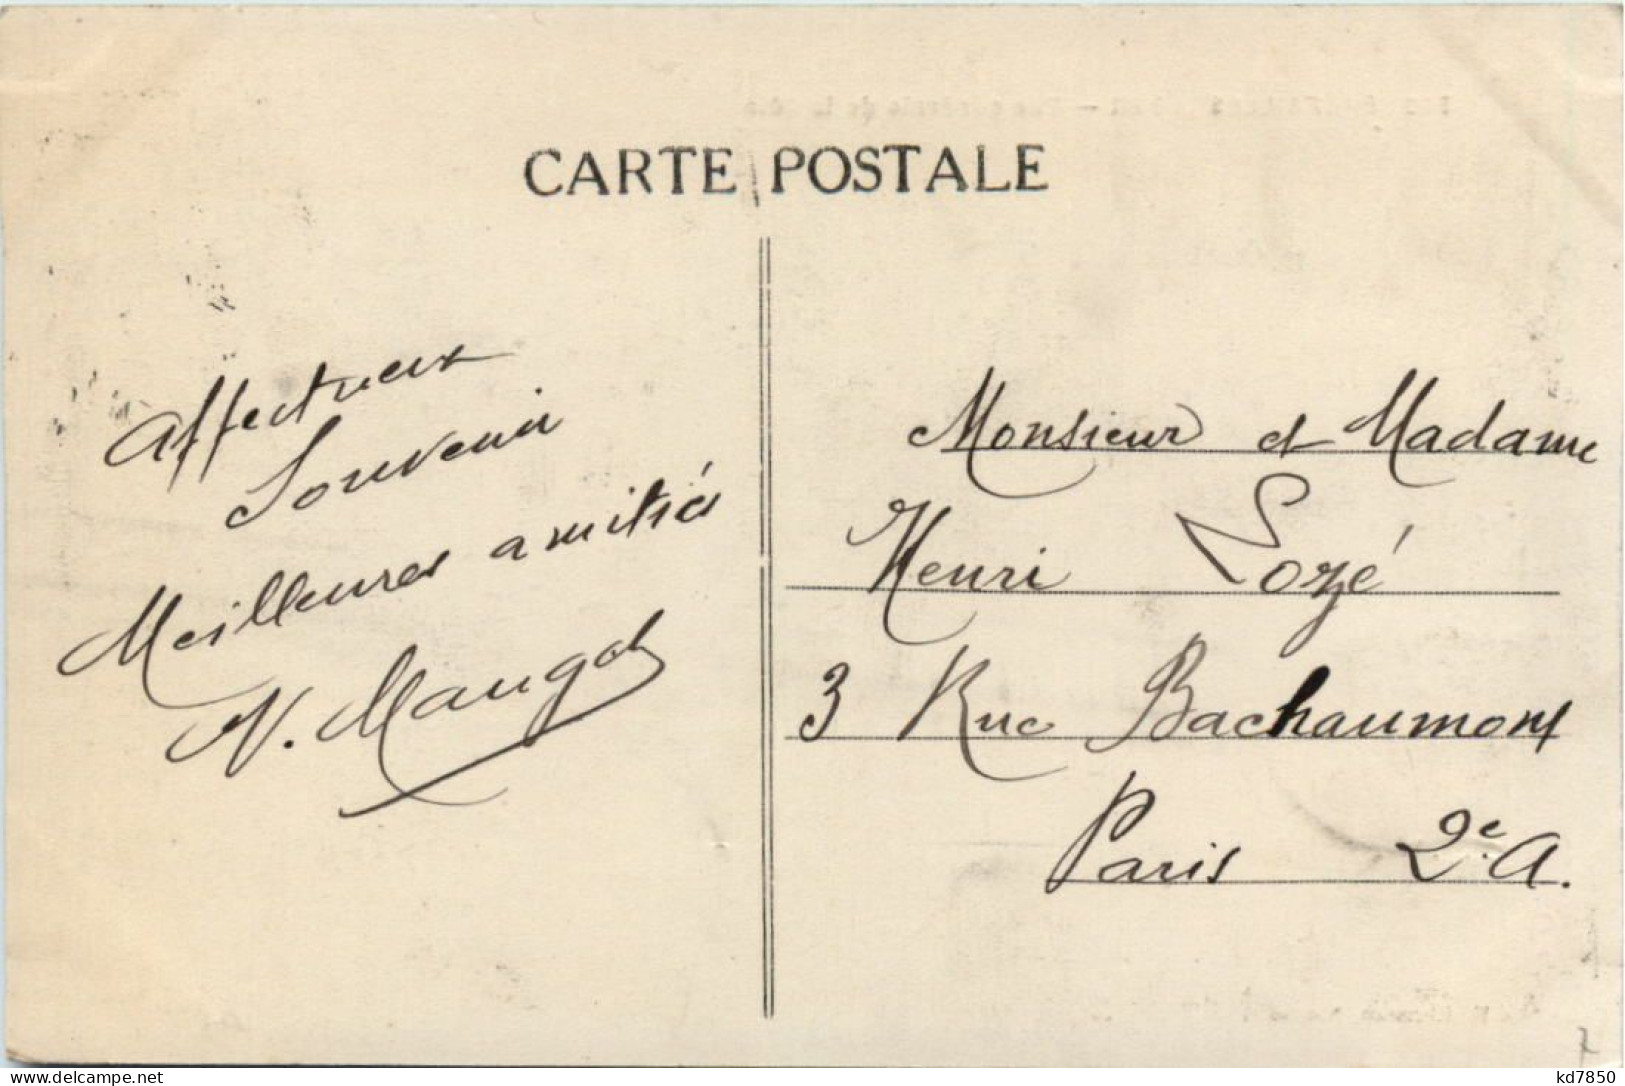 CARTE POSTALE
Affectueux
Souvenir
Meilleures amitiés
Monsieur et Madame
Henri Lozé
3 Rue Bachaumont
Paris 2e. A.
www.delcampe.net
kd7850